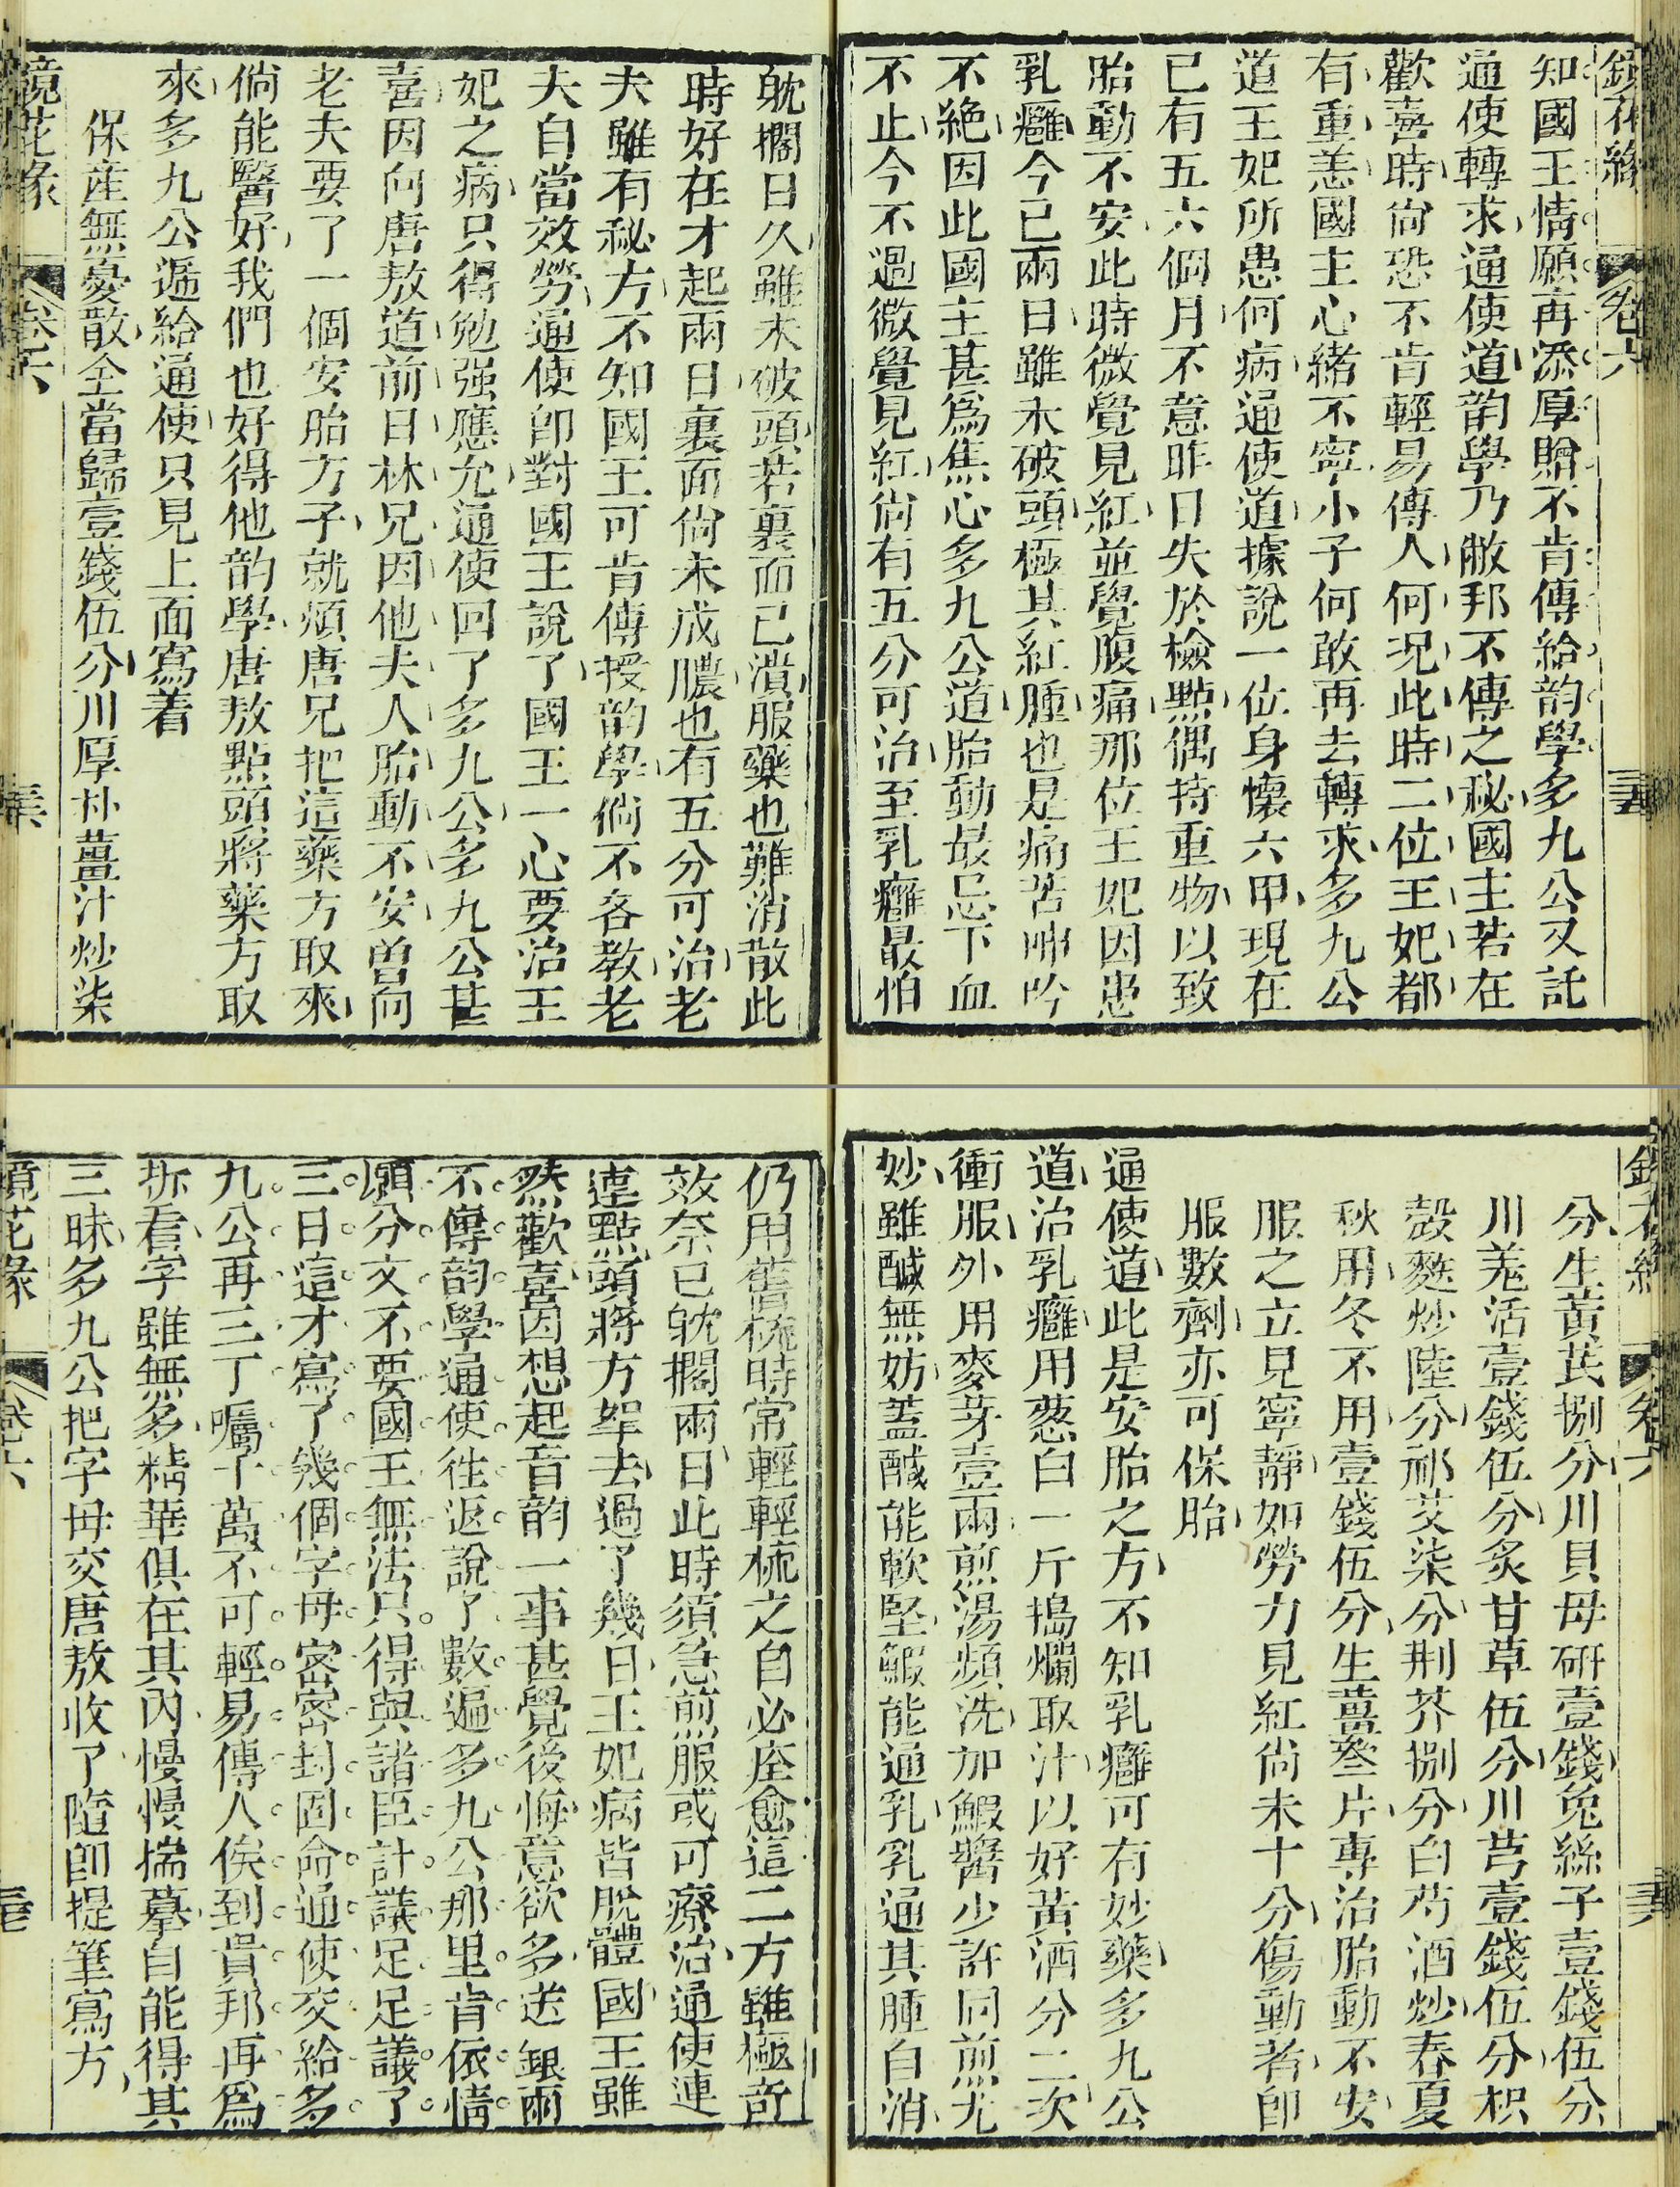 鏡花緣 卷六 三五
知國王情願再添厚贈不肯傳給韵學多九公又託
通使轉求通使道韵學乃敝邦不傳之秘國主若在
歡喜時尙恐不肯輕易傳人何况此時二位王妃都
有重恙國主心緖不寧小子何敢再去轉求多九公
道王妃所患何病通使道據說一位身懷六甲現在
已有五六個月不意昨日失於檢點偶持重物以致
胎動不安此時微覺見紅並覺腹痛那位王妃因患
乳癰今已兩日雖未破頭極其紅腫也是痛苦呻吟
不絕因此國主甚爲焦心多九公道胎動最忌下血
不止今不過微覺見紅尙有五分可治至乳癰最怕
躭擱日久雖未破頭若裏面已潰服藥也難消散此
時好在才起兩日裏面尙未成膿也有五分可治老
夫雖有秘方不知國王可肯傳授韵學倘不吝教老
夫自當效勞通使卽對國王說了國王一心要治王
妃之病只得勉强應允通使回了多九公多九公甚
喜因向唐敖道前日林兄因他夫人胎動不安曾向
老夫要了一個安胎方子就煩唐兄把這藥方取來
倘能醫好我們也好得他韵學唐敖點頭將藥方取
來多九公遞給通使只見上面寫着
保産無憂散全當歸壹錢伍分川厚朴薑汁炒柒
鏡花緣 卷六
分生黃芪捌分川貝母硏壹錢兔絲子壹錢伍分
川羌活壹錢伍分炙甘草伍分川芎壹錢伍分枳
殼麩炒陸分祁艾柒分荆芥捌分白芍酒炒春夏
秋用冬不用壹錢伍分生薑叁片專治胎動不安
服之立見寧靜如勞力見紅尙未十分傷動者卽
服數劑亦可保胎
通使道此是安胎之方不知乳癰可有妙藥多九公
道治乳癰用葱白一斤搗爛取汁以好黃酒分二次
衝服外用麥芽壹兩煎湯頻洗加鰕醬少許同煎尤
妙雖鹹無妨蓋鹹能軟堅鰕能通乳乳通其腫自消
仍用舊梳時常輕輕梳之自必痊愈這二方雖極奇
效奈已躭擱兩日此時須急煎服或可療治通使連
連點頭將方拏去過了幾日王妃病皆脫體國王雖
然歡喜因想起音韵一事甚覺後悔意欲多送銀兩
不傳韵學通使往返說了數遍多九公那里肯依情
願分文不要國王無法只得與諸臣計議足足議了
三日這才寫了幾個字母密密封固命通使交給多
九公再三丁囑千萬不可輕易傳人俟到貴邦再爲
拆看字雖無多精華俱在其內慢慢揣摹自能得其
三昧多九公把字母交唐敖收了隨卽提筆寫方
鏡花緣 卷六